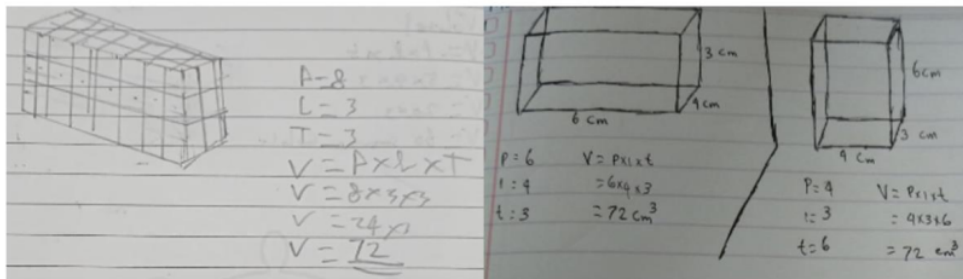 P=8
L=3
T=3
V=PxLxT
V=8x3x3
V=24x3
V=72
3 cm
4 cm
6 cm
P=6
l:4
t:3
V=Pxlxt
=6x4x3
=72cm³
6cm
3 cm
4 cm
P=4
l=3
t=6
V=Pxlxt
=4x3x6
=72 cm³